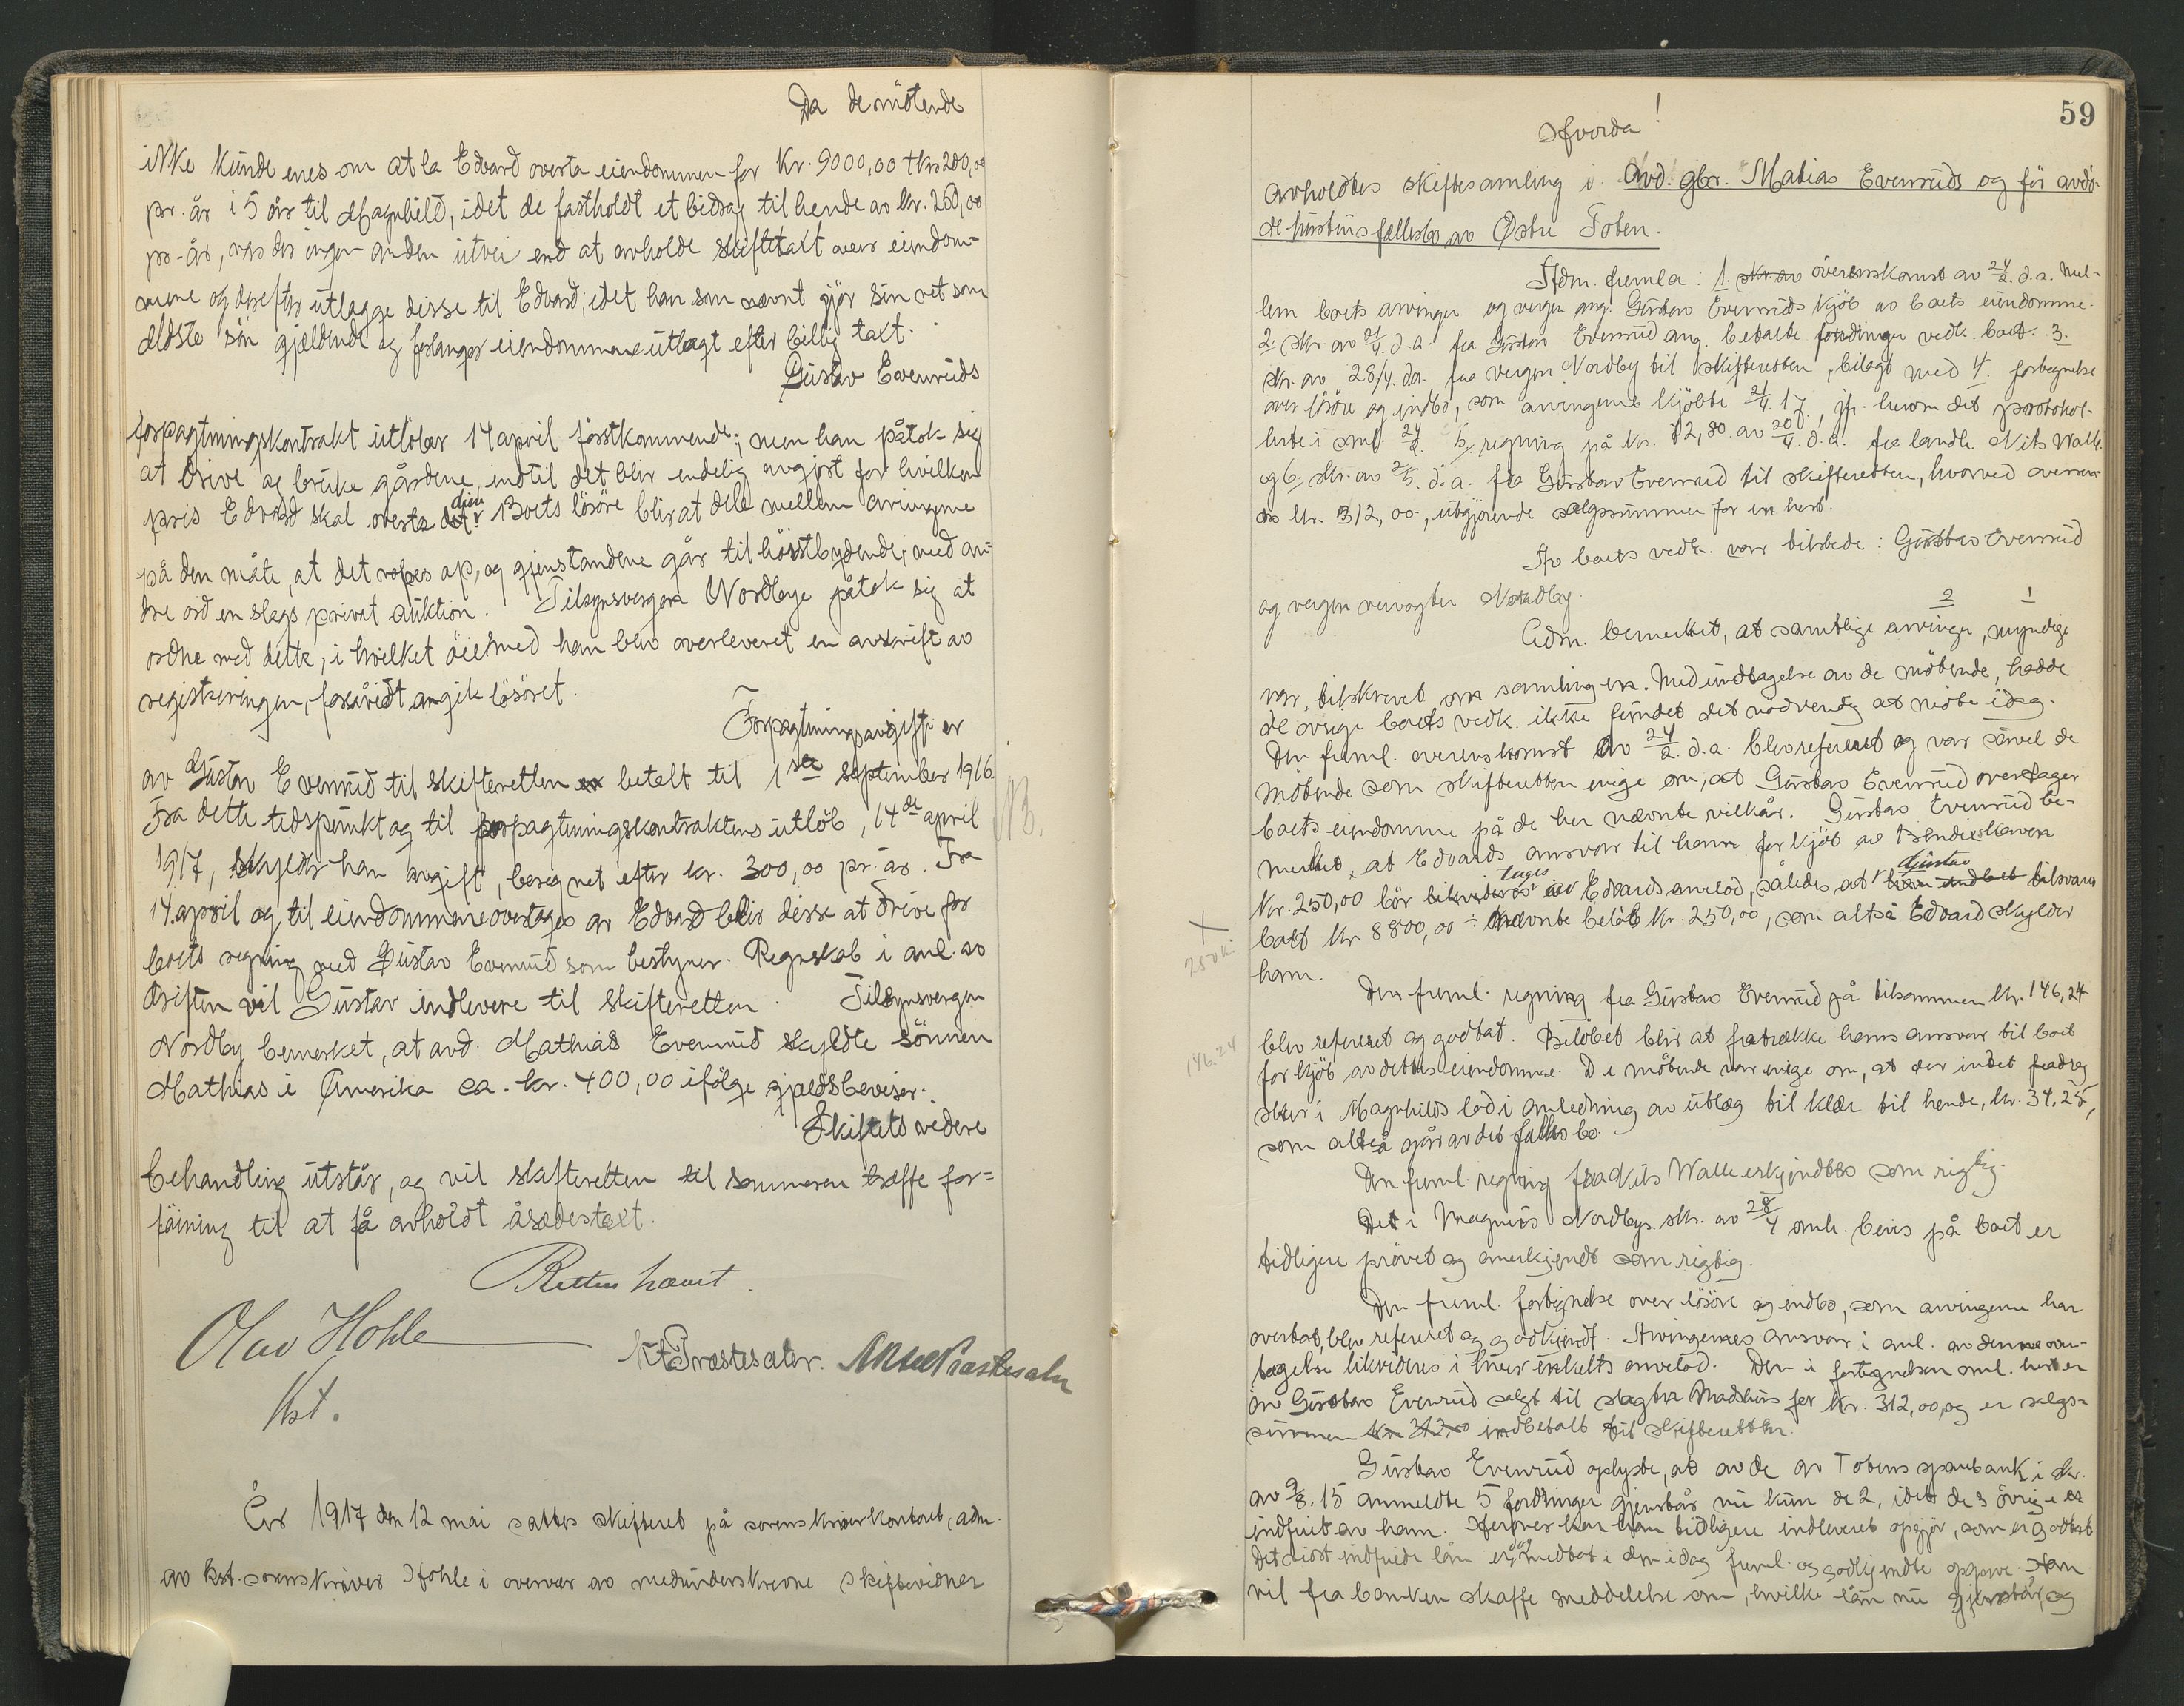 Da de mötende
ikke kunde enes om at la Edvard overta eiendommen for Kr. 9000,00 + kr 200,00
pr. år i 5 år til Magnhild, idet de fastholdt et bidrag til hende av kr. 250,00
pr. år, var der ingen anden utvei end at avholde skiftetakt over eiendom-
mene og derefter utlægge disse til Edvard, idet han som nævnt gjör sin ret som
ældste sön gjældende og forlanger eiendommene utlagt efter billig takt.
Gustav Evenruds
forpagtningskontrakt utlöper 14 april förstkommende; men han påtok sig
at drive og bruke gårdene, indtil det blir endelig avgjort for hvilken
pris Edvard skal overta disse. Boets lösöre blir at dele mellem arvingerne
på den måte, at det ropes op, og gjenstandene går til höistbydende, med an-
dre ord en slags privat auktion. Tilsynsvergen Nordbye påtok sig at
ordne med dette, i hvilket öiemed han blev overleveret en avskrift av
registreringen, forsåvidt angik lösöret.
Forpagtningsavgift er
av Gustav Evenrud til skifteretten betalt til 1ste september 1916.
Fra dette tidspunkt og til forpagtningskontraktens utlöb, 14de april
NB.
1917, skylder han avgift, beregnet efter kr. 300,00 pr. år. Fra
14. april og til eiendommene overtages av Edvard blir disse at drive for
boets regning med Gustav Evenrud som bestyrer. Regnskab i anl. av
driften vil Gustav indlevere til skifteretten. Tilsynsvergen
Nordby bemerket, at avd. Mathias Evenrud skyldte sönnen
Mathias i Amerika ca. kr. 400,00 ifölge gjældsbeviser.
Skiftets videre
behandling utstår, og vil skifteretten til sommeren træffe for-
föining til at få avholdt åsædestakt.
Retten hævet.
Olav Hohle
Kst.
K. Præstesæter. Præstesæter
År 1917 den 12 mai sattes skifteret på sorenskriverkontoret, adm.
av kst. sorenskriver Hohle i overvær av medunderskrevne skiftevidner
59
Hvorda!
avholdtes skiftesamling i avd. gbr. Matias Evenruds og för avdö-
de hustrus fællesbo av Östre Toten.
Adm. fremla: 1. overenskomst av 24/2. d.a. mel-
lem boets arvinger og verger ang. Gustav Evenruds kjöb av boets eiendomme.
2 Skr. av 21/4. d.a. fra Gustav Evenrud ang. betalte fordringer vedk. boet. 3.
Skr. av 28/4. d.a. fra vergen Nordby til skifteretten, bilagt med 4. fortegnelse
over lösöre og indbo, som arvingerne kjöbte 21/4. 17, jfr. herom det protokol-
lerte i saml. 24/2. 5. regning på kr. 12,80 av 20/4. d.a. fra landh. Nils Walle
og 6. Skr. av 2/5. d.a. fra Gustav Evenrud til skifteretten, hvorved oversen-
des kr. 312,00, utgjörende salgssummen for en hest.
Av boets vedk. var tilstede: Gustav Evenrud
og vergen veivogter Nordby.
2 1
Adm. bemerket, at samtlige arvinger, myndige
var tilskrevet om samlingen. Med undtagelse av de mötende, hadde
de övrige boets vedk. ikke fundet det nödvendig at möte idag.
Den freml. overenskomst av 24/2 d.a. blev referert og var såvel de
mötende som skifteretten enige om, at Gustav Evenrud overtager
boets eiendomme på de her nævnte vilkår. Gustav Evenrud be-
merket, at Edvards ansvar til ham for kjöb av
tages Gustav
Kr. 250,00 bör av Edvards arvelod, således at tilsvarer
X
250 kr.
boet kr 8800,00 ÷ nævnte belöb kr. 250,00, som altså Edvard skylder
ham.
Den freml. regning fra Gustav Evenrud på tilsammen kr. 146,24
146.24
blev referert og godtat. Belöbet blir at fratrække hans ansvar til boet
for kjöb av dettes eiendomme. De mötende var enige om, at der intet fradrag
sker i Magnhilds lod i anledning av utlæg til klær til hende, kr. 34,25,
som altså går av det fælles bo.
Den freml. regning fra Nils Walle erkjendtes som rigtig.
Det i Magnus Nordbys skr. av 28/4 omh. bevis på boet er
tidligere prövet og anerkjendt som rigtig.
Den freml. fortegnelse over lösöre og indbo, som arvingerne har
overtat, blev referert og godkjendt. Arvingernes ansvar i anl. av denne over-
tagelse likvideres i hver enkelts arvelod. Den i fortegnelsen oml. hest er
av Gustav Evenrud solgt til slagter Madshus for kr. 312,00, og er salgs-
summen kr 312,00 indbetalt til skifteretten.
Gustav Evenrud oplyste, at av de av Totens sparebank i skr.
av 9/8. 15 anmeldte 5 fordringer gjenstår nu kun de 2, idet de 3 övrige er
indfriet av ham. Herover har han tidligere indleveret opgjör, som er godtat.
Det sist indfriede lån er og medtat i den idag freml. og godkjendte opgave. Han
vil fra banken skaffe meddelelse om, hvilke lån nu gjenstår, og